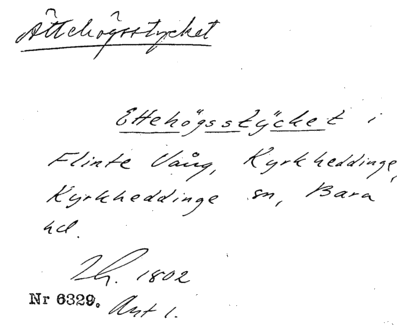 Ättehögsstycket
Ettehögsstÿcket i
Flinte Vång, Kyrkheddinge,
Kyrkheddinge sn, Bara
hd.
1802
Nr 6329. Akt 1.